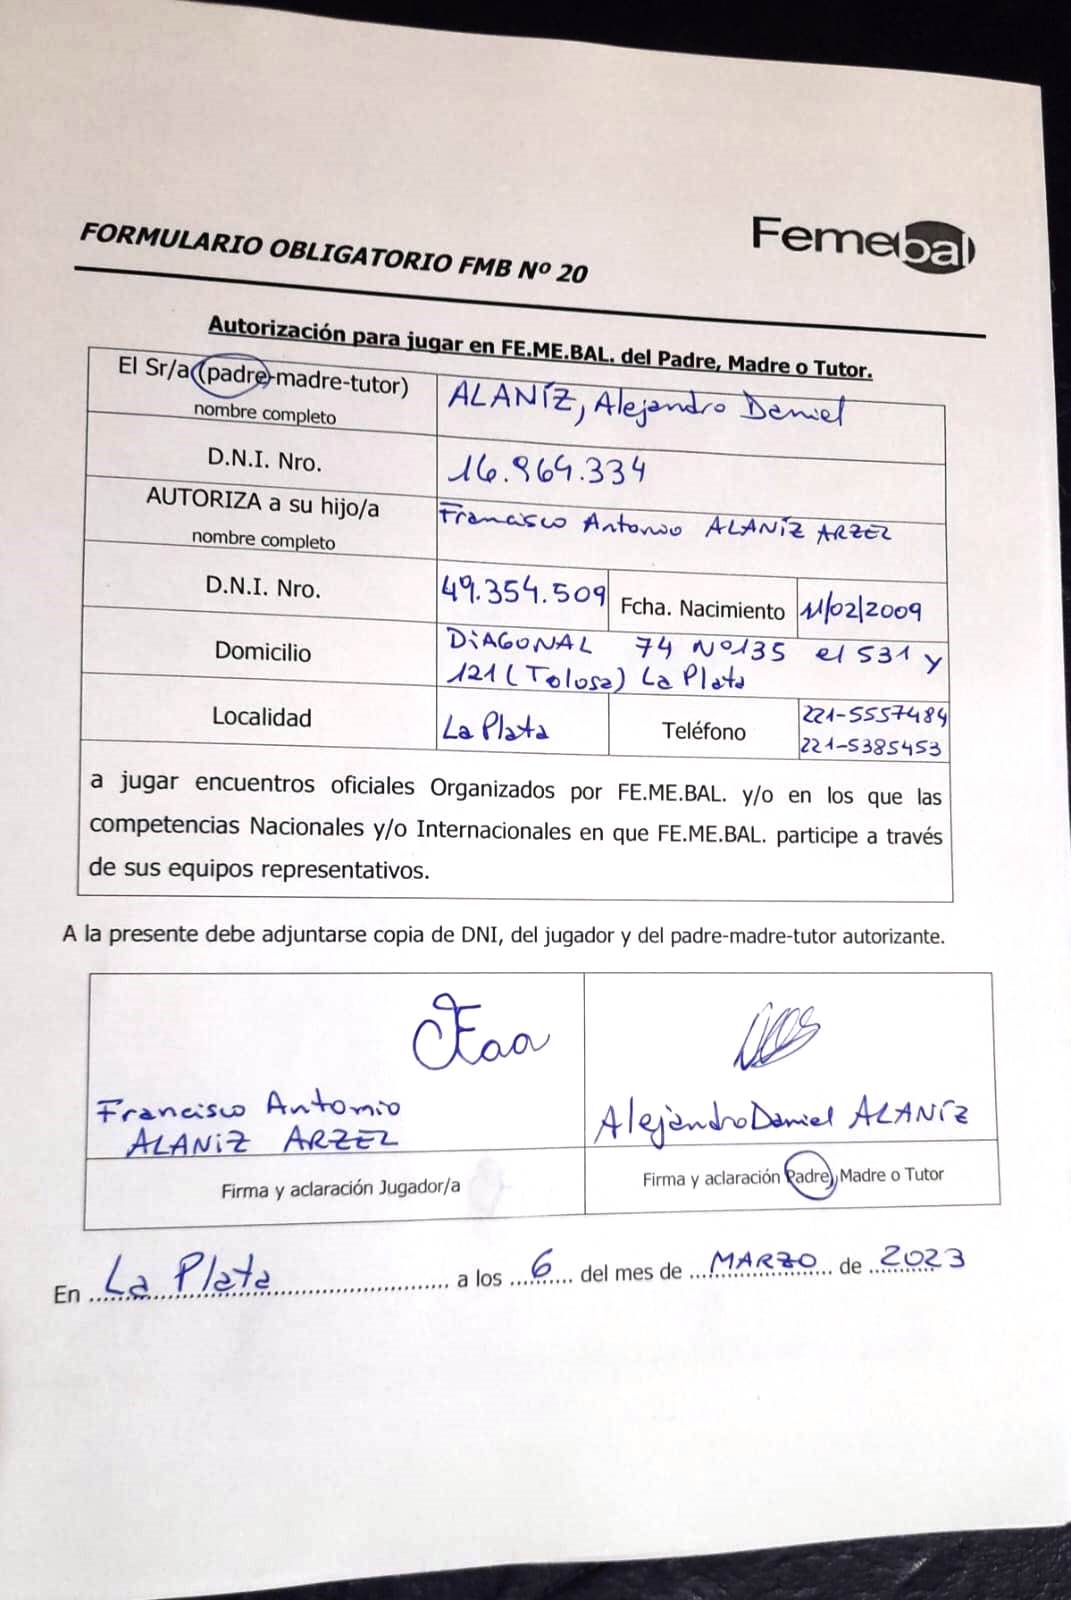 FORMULARIO OBLIGATORIO FMB Nº 20
Femebal
Autorización para jugar en FE.ME.BAL. del Padre, Madre o Tutor.
El Sr/a (padre-madre-tutor)
nombre completo
ALANÍZ, Alejandro Daniel
D.N.I. Nro.
16.964.334
AUTORIZA a su hijo/a
nombre completo
Francisco Antonio ALANÍZ ARZEL
D.N.I. Nro.
49.354.509
Fcha. Nacimiento
11/02/2009
Domicilio
DIAGONAL 74 Nº135 e/ 531 y
121 (Tolosa) La Plata
Localidad
La Plata
Teléfono
221-5557484
221-5385453
a jugar encuentros oficiales Organizados por FE.ME.BAL. y/o en los que las
competencias Nacionales y/o Internacionales en que FE.ME.BAL. participe a través
de sus equipos representativos.
A la presente debe adjuntarse copia de DNI, del jugador y del padre-madre-tutor autorizante.
Faa
Francisco Antonio
ALANIZ ARZEL
Firma y aclaración Jugador/a
Alejandro Daniel ALANÍZ
Firma y aclaración Padre, Madre o Tutor
En La Plata a los 6 del mes de MARZO de 2023